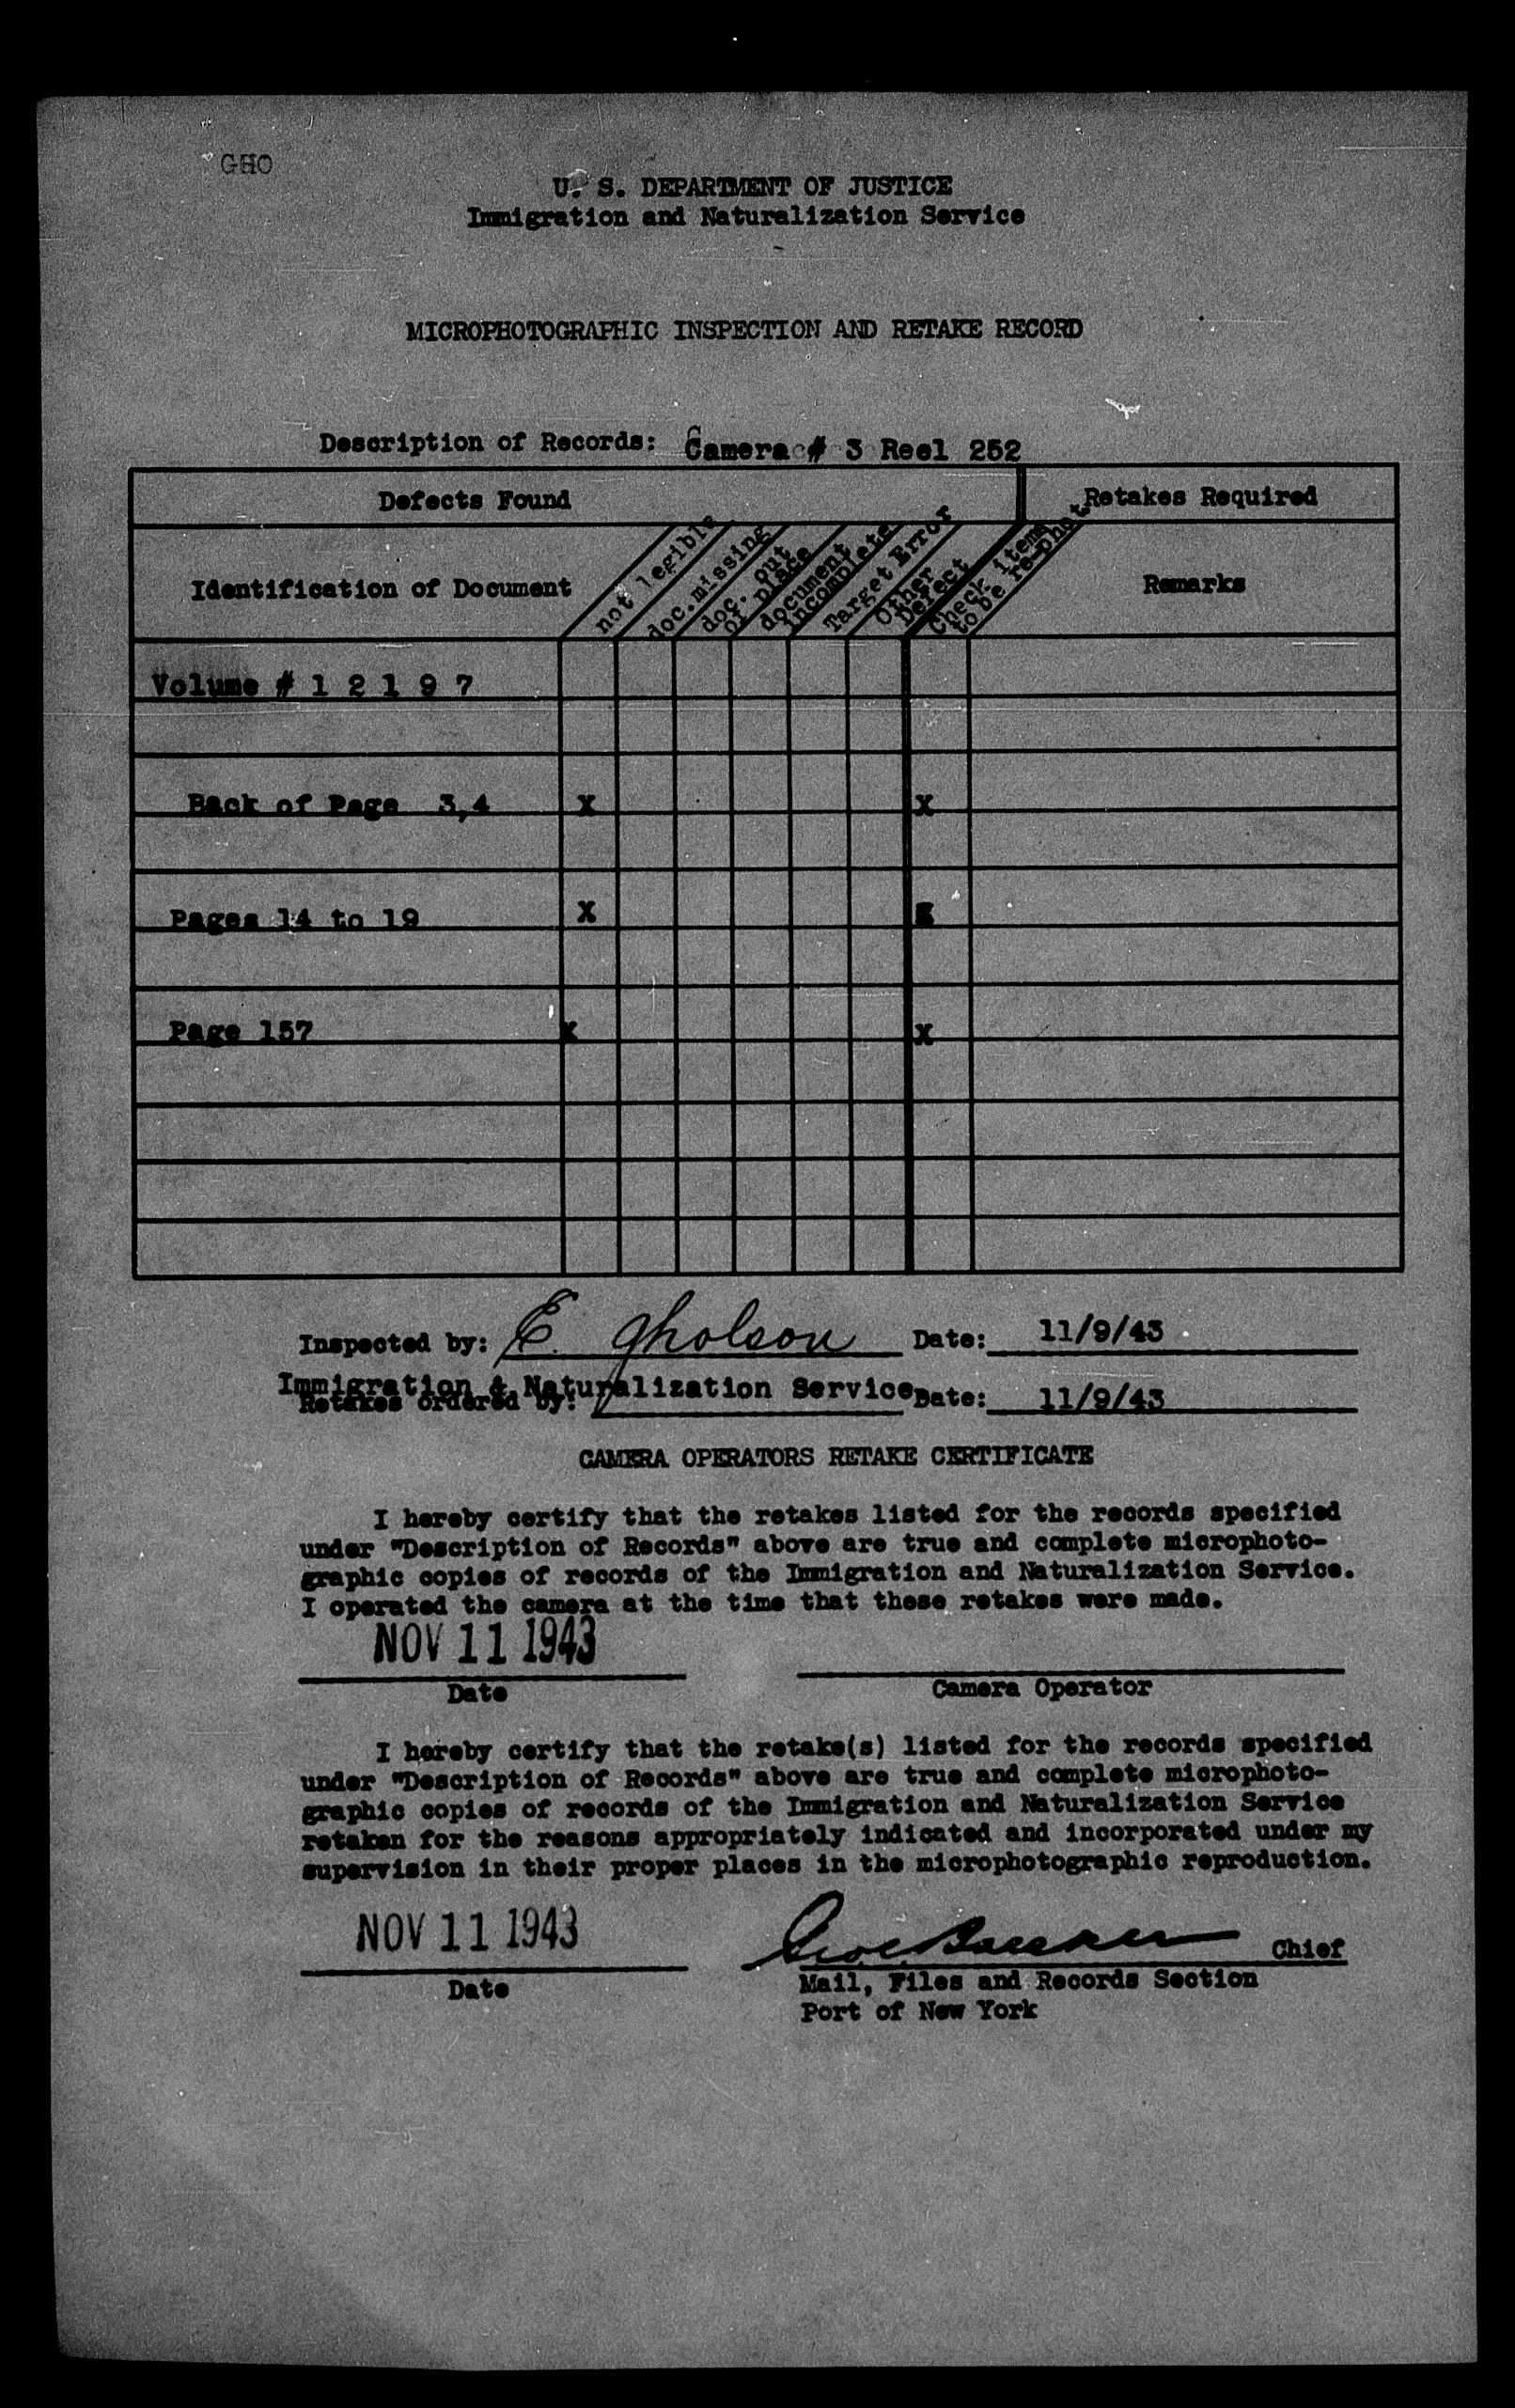 GHO
U. S. DEPARTMENT OF JUSTICE
Immigration and Naturalization Service
MICROPHOTOGRAPHIC INSPECTION AND RETAKE RECORD
Description of Records: Camera # 3 Reel 252
Defects Found
Retakes Required
Identification of Document
not legible
doc. missing
doc. out
of place
document
incomplete
Target Error
Other
Defect
Check items
to be re-phot.
Remarks
Volume # 1 2 1 9 7
Back of Page 3,4 X X
Pages 14 to 19 X X
Page 157 X X
Inspected by: E. Gholson Date: 11/9/43
Immigration & Naturalization Service
Retakes ordered by: Date: 11/9/43
CAMERA OPERATORS RETAKE CERTIFICATE
I hereby certify that the retakes listed for the records specified
under "Description of Records" above are true and complete microphoto-
graphic copies of records of the Immigration and Naturalization Service.
I operated the camera at the time that these retakes were made.
NOV 11 1943
Date
Camera Operator
I hereby certify that the retake(s) listed for the records specified
under "Description of Records" above are true and complete microphoto-
graphic copies of records of the Immigration and Naturalization Service
retaken for the reasons appropriately indicated and incorporated under my
supervision in their proper places in the microphotographic reproduction.
NOV 11 1943
Chief
Date
Mail, Files and Records Section
Port of New York